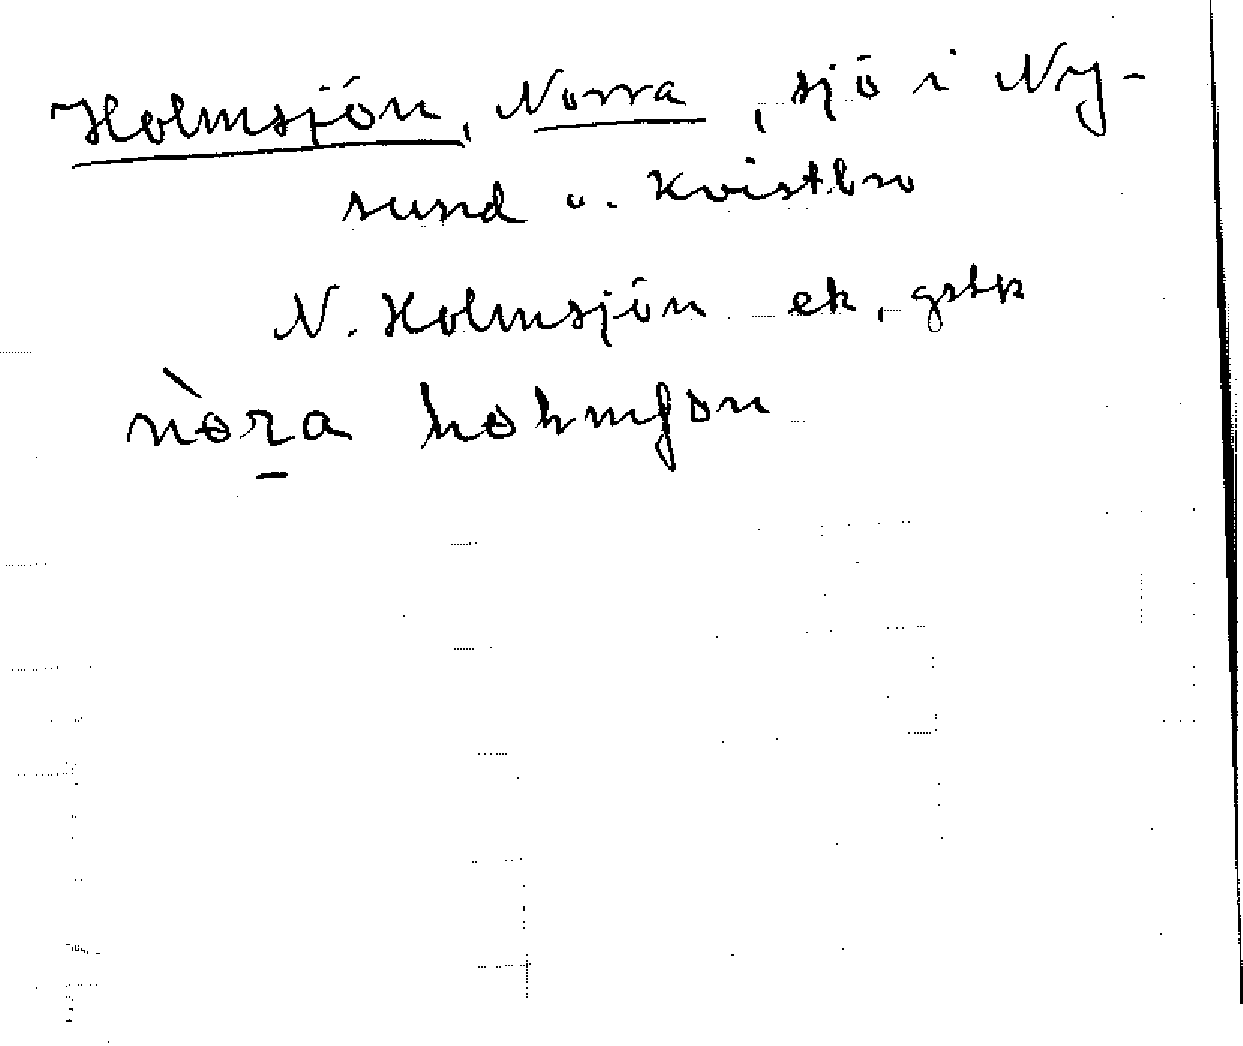 Holmsjön, Norra, sjö i Ny-
sund o. Kvistbro
N. Holmsjön ek, gstk
nòra holmʃɵn